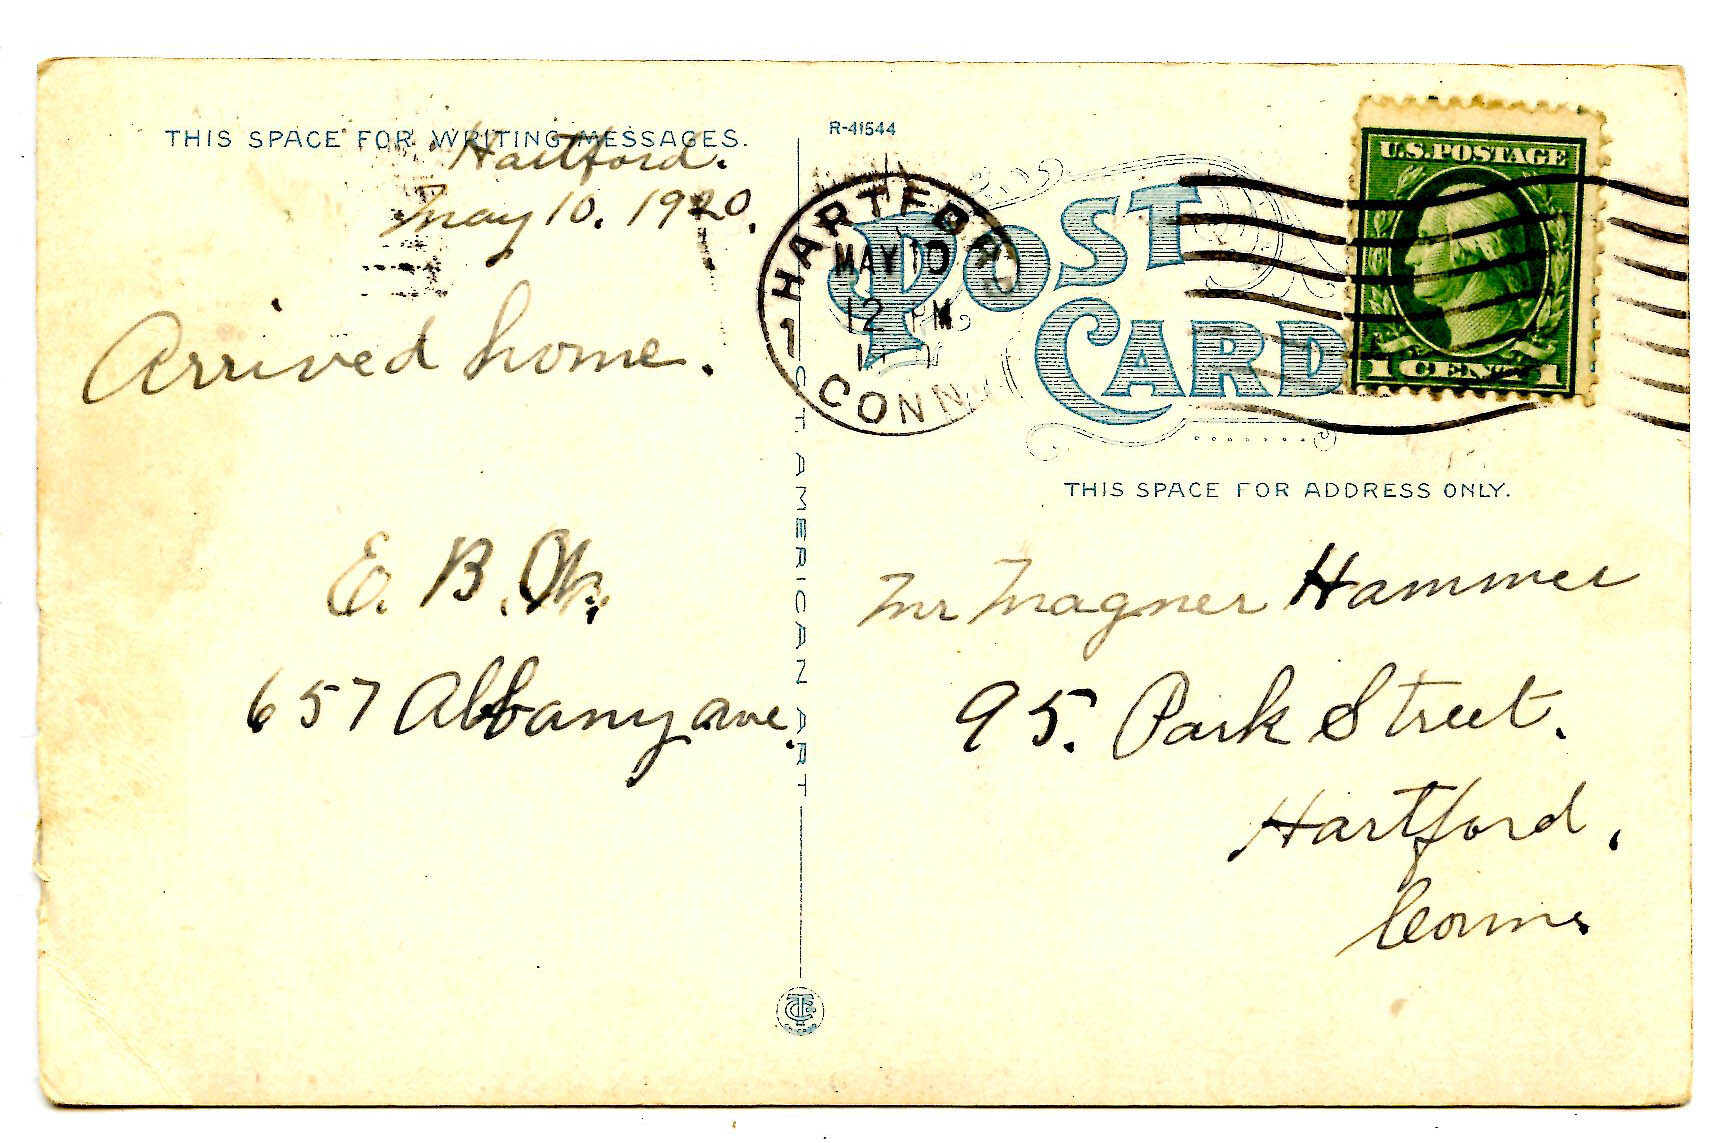 THIS SPACE FOR WRITING MESSAGES.
Hartford.
May 10. 1920.
Arrived home.
E. B.
657 Albany ave.
C T AMERICAN ART
R-41544
POST
CARD
HARTFORD
MAY 10
12 PM
1
CONN
U.S. POSTAGE
1 CENT 1
THIS SPACE FOR ADDRESS ONLY.
Mr Magner Hammer
95. Park Street.
Hartford,
Conn.